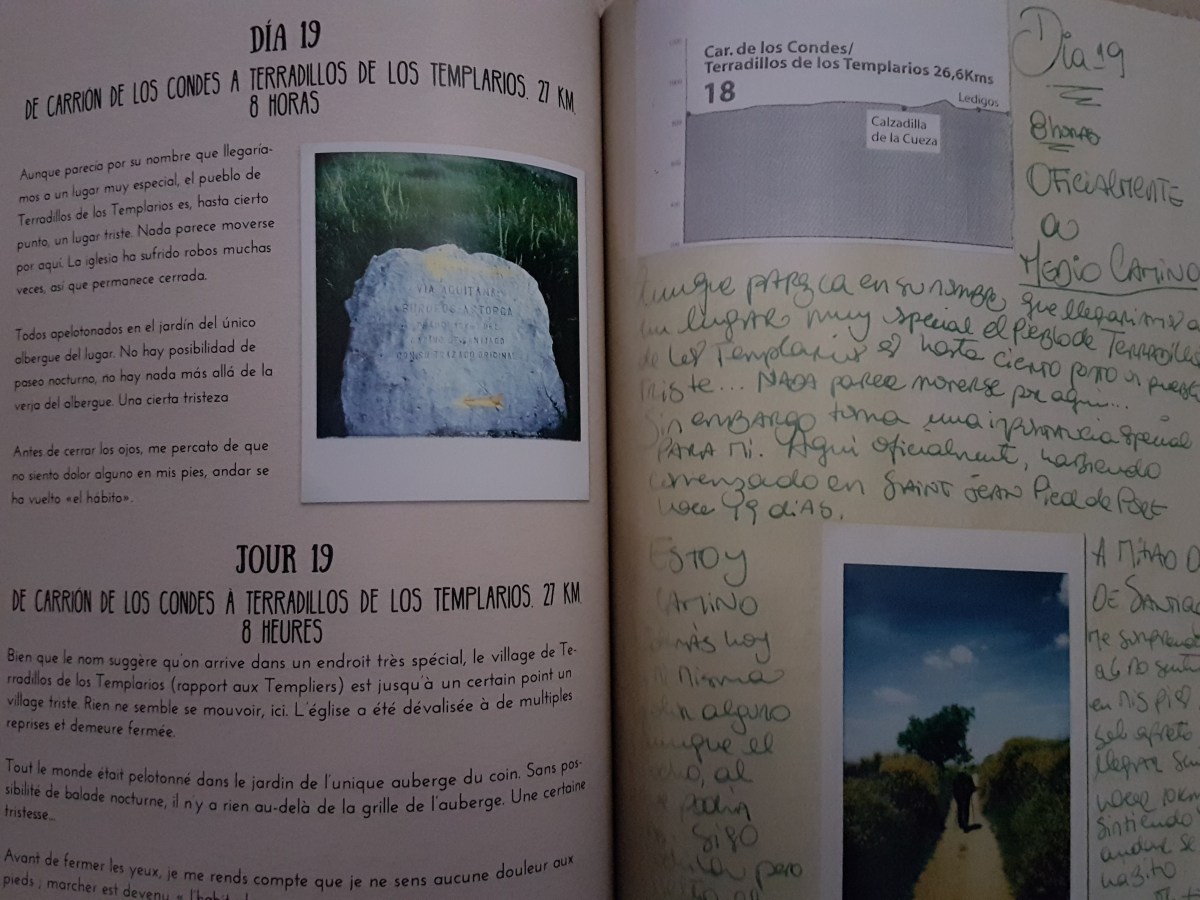 DÍA 19
DE CARRIÓN DE LOS CONDES A TERRADILLOS DE LOS TEMPLARIOS. 27 KM.
8 HORAS
Aunque parecía por su nombre que llegaría-
mos a un lugar muy especial, el pueblo de
Terradillos de los Templarios es, hasta cierto
punto, un lugar triste. Nada parece moverse
por aquí. La iglesia ha sufrido robos muchas
veces, así que permanece cerrada.
Todos apelotonados en el jardín del único
albergue del lugar. No hay posibilidad de
paseo nocturno, no hay nada más allá de la
verja del albergue. Una cierta tristeza
Antes de cerrar los ojos, me percato de que
no siento dolor alguno en mis pies, andar se
ha vuelto «el hábito».
VIA AQUITANA
BURDEOS ASTORGA
CON SU TRAZADO ORIGINAL
JOUR 19
DE CARRIÓN DE LOS CONDES À TERRADILLOS DE LOS TEMPLARIOS. 27 KM.
8 HEURES
Bien que le nom suggère qu'on arrive dans un endroit très spécial, le village de Te-
rradillos de los Templarios (rapport aux Templiers) est jusqu'à un certain point un
village triste. Rien ne semble se mouvoir, ici. L'église a été dévalisée à de multiples
reprises et demeure fermée.
Tout le monde était pelotonné dans le jardin de l'unique auberge du coin. Sans pos-
sibilité de balade nocturne, il n'y a rien au-delà de la grille de l'auberge. Une certaine
tristesse...
Avant de fermer les yeux, je me rends compte que je ne sens aucune douleur aux
pieds ; marcher est devenu
Car. de los Condes/
Terradillos de los Templarios 26,6Kms
18
Ledigos
Calzadilla
de la Cueza
Día 19
8 horas
OFICIALMENTE
a
MEDIO CAMINO
Aunque parezca en su nombre que llegaríamos a
un lugar muy especial el pueblo de Terradillos
de los Templarios es hasta cierto punto un pueblo
triste... NADA parece moverse por aquí...
Sin embargo toma una importancia especial
PARA MÍ. Aquí oficialmente, habiendo
comenzado en SAINT JEAN Pied de Port
hace 19 días.
ESTOY
CAMINO
más hoy
misma
alguno
aunque el
al
podía
sigo
pero
A MITAD D
DE SANTIA
me sorprend
no sent
en mis pies
llegar
hace 10km
sintiendo
andar se
habito